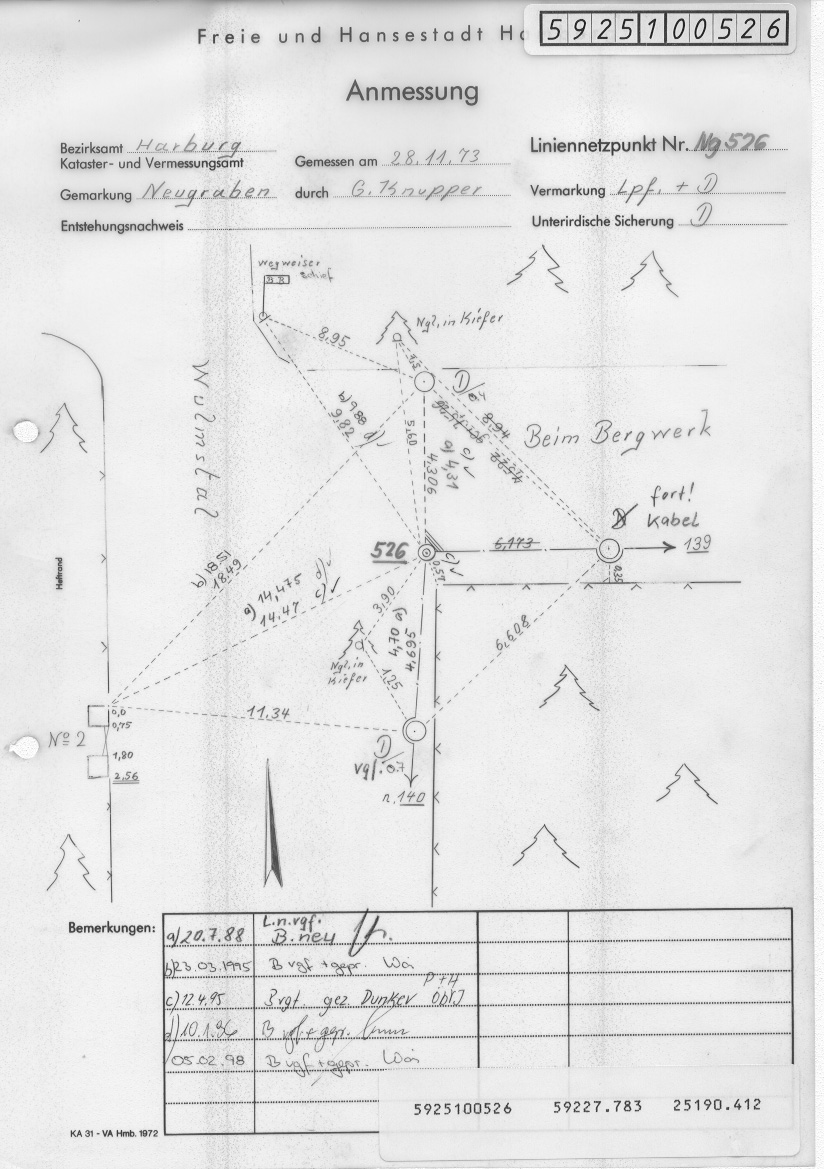 Freie und Hansestadt Ha
5925100526
Anmessung
Bezirksamt Harburg
Kataster- und Vermessungsamt
Gemessen am 28.11.73
Liniennetzpunkt Nr. Ng 526
Gemarkung Neugraben
durch G. Knupper
Vermarkung Lpf. + D
Entstehungsnachweis
Unterirdische Sicherung D
Wegweiser
schief
Ngl. in Kiefer
8,95
1,3
D
Wulmstal
b) 9,88
9,82 d)
5,60
4,306
a) 4,31
c)
8,94
Beim Bergwerk
fort!
Kabel
D
526
6,173
139
c)
0,57
0,35
b) 18,51
18,49
a) 14,475 d)
14,47 c)
Heftrand
3,90
4,70 a)
4,695
6,608
Ngl. in
Kiefer
1,25
0,0
0,75
11,34
No 2
1,80
2,56
D
vgl. 0.7
n. 140
Bemerkungen:
L.n.vgf.
a) 20.7.88 B. neu
b) 23.03.1995 B vgf + gepr. Wai
P + H
c) 12.4.95 Brgt gez. Dunker
d) 10.1.96 B vgf + gepr.
05.02.98 B vgf + gepr. Wai
5925100526 59227.783 25190.412
KA 31 - VA Hmb. 1972